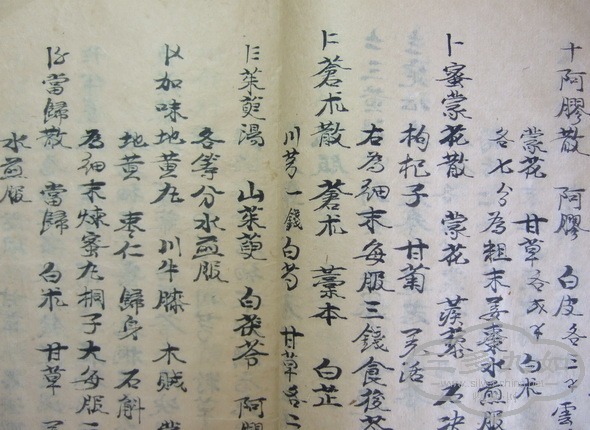 十阿膠散 阿膠 白皮各二
蒙花 甘草 白朮
各七分為粗末姜棗水煎服
卜蜜蒙花散 蒙花 蒺藜
枸杞子 甘菊 羌活
右為細末每服三錢食後茶
蒼朮散 蒼朮 藁本 白芷
川芎一錢 白芍 甘草各二
茱萸湯 山茱萸 白茯苓 阿膠
各等分水煎服
加味地黃丸 川牛膝 木賊
地黃 棗仁 歸身 石斛
為細末煉蜜丸桐子大每服
當歸散 當歸 白朮 甘草
水煎服